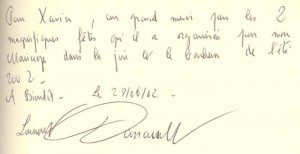 Pour Xavier, un grand merci pour les 2
magnifiques fêtes qu'il a organisées pour mon
Mariage dans la joie et le bonheur de l'été
2002.
A Bientôt. le 27/06/02
Laurent Dassault